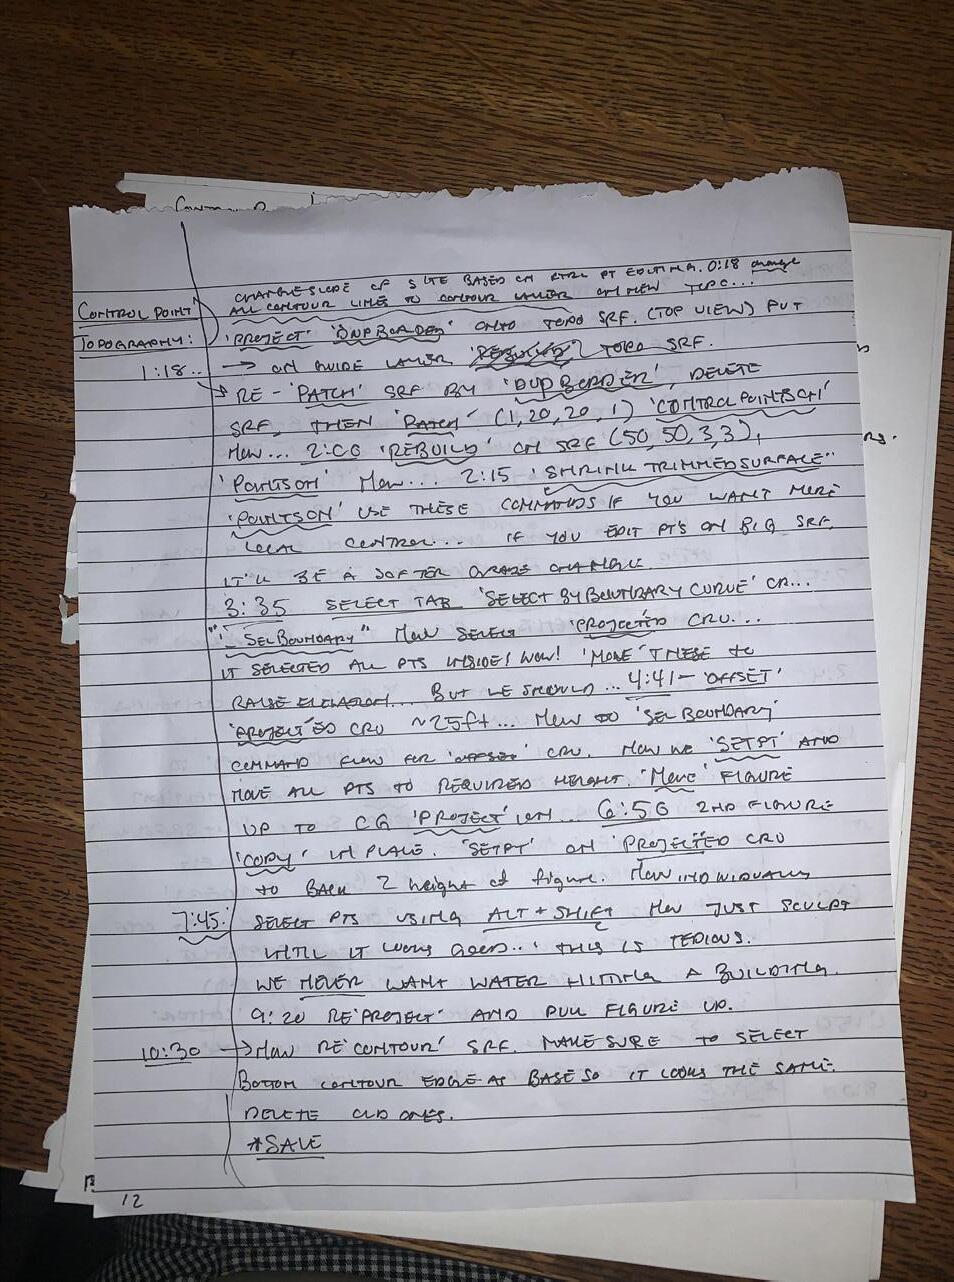 CHANGE SLOPE OF SITE BASED ON CTRL PT EDITING. 0:18 change
ALL CONTOUR LINES TO CONTOUR LAYER ON NEW TOPO...
CONTROL POINT
TOPOGRAPHY:
'PROJECT' 'DUPBORDER' ONTO TOPO SRF. (TOP VIEW) PUT
1:18.. → ON GUIDE LAYER TOPO SRF.
→ RE-'PATCH' SRF BY 'DUPBORDER', DELETE
SRF, THEN 'PATCH' (1, 20, 20, 1) 'CONTROLPOINTSON'
NOW... 2:06 'REBUILD' ON SRF (50, 50, 3, 3),
'POINTSON' NOW... 2:15 'SHRINK TRIMMEDSURFACE"
'POINTSON' USE THESE COMMANDS IF YOU WANT MORE
LOCAL CONTROL... IF YOU EDIT PTS ON BIG SRF
IT'LL BE A SOFTER GRADE CHANGE.
3:35 SELECT TAB 'SELECT BY BOUNDARY CURVE' OR...
"'_SELBOUNDARY" NOW SELECT 'PROJECTED' CRV...
IT SELECTED ALL PTS INSIDE! NOW! 'MOVE' THESE to
RAISE ELEVATION... BUT WE SHOULD... 4:41 - 'OFFSET'
'PROJECT'ED CRV ~25ft... NOW DO 'SELBOUNDARY'
COMMAND NOW FOR 'OFFSET' CRV. NOW WE 'SETPT' AND
MOVE ALL PTS TO REQUIRED HEIGHT. 'MOVE' FIGURE
UP TO CG 'PROJECT'ION... 6:56 2ND FIGURE
'COPY' IN PLACE. 'SETPT' ON 'PROJECTED' CRV
to BACK 2 height of figure. NOW INDIVIDUALLY
7:45: SELECT PTS USING ALT + SHIFT NOW JUST SCULPT
UNTIL IT LOOKS GOOD... THIS IS TEDIOUS.
WE NEVER WANT WATER HITTING A BUILDING.
9:20 RE'PROJECT' AND PULL FIGURE UP.
10:30 → NOW RE'CONTOUR' SRF. MAKE SURE TO SELECT
BOTTOM CONTOUR EDGE AS BASE SO IT LOOKS THE SAME.
DELETE OLD ONES.
*SAVE
12